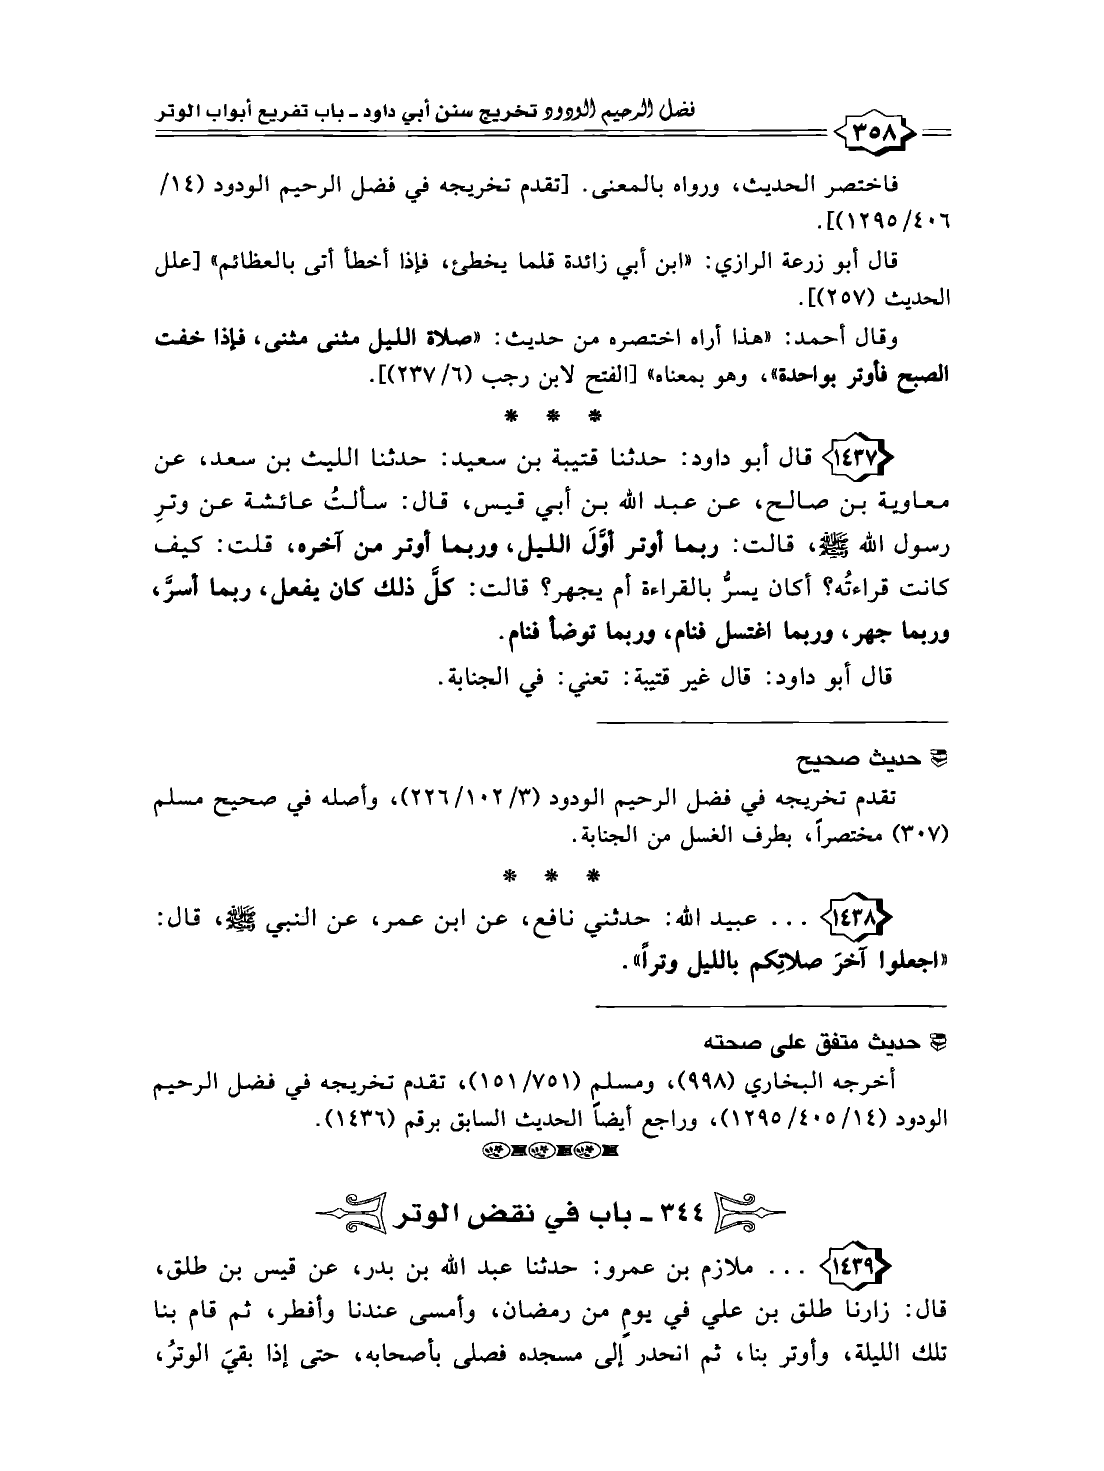 فضل الرحيم الودود تخريج سنن أبي داود ـ باب تفريع أبواب الوتر
٣٥٨
فاختصر الحديث، ورواه بالمعنى. [تقدم تخريجه في فضل الرحيم الودود (١٤/
١٢٩٥/٤٠٦)].
قال أبو زرعة الرازي: «ابن أبي زائدة قلما يخطئ، فإذا أخطأ أتى بالعظائم» [علل
الحديث (٢٥٧)].
وقال أحمد: «هذا أراه اختصره من حديث: «صلاة الليل مثنى مثنى، فإذا خفت
الصبح فأوتر بواحدة»، وهو بمعناه» [الفتح لابن رجب (٢٣٧/٦)].
* * *
١٤٣٧ قال أبو داود: حدثنا قتيبة بن سعيد: حدثنا الليث بن سعد، عن
معاوية بن صالح، عن عبد الله بن أبي قيس، قال: سألتُ عائشة عن وترِ
رسول الله ﷺ، قالت: ربما أوتر أوَّلَ الليل، وربما أوتر من آخره، قلت: كيف
كانت قراءتُه؟ أكان يسرُّ بالقراءة أم يجهر؟ قالت: كلَّ ذلك كان يفعل، ربما أسرَّ،
وربما جهر، وربما اغتسل فنام، وربما توضأ فنام.
قال أبو داود: قال غير قتيبة: تعني: في الجنابة.
حديث صحيح
تقدم تخريجه في فضل الرحيم الودود (٢٢٦/١٠٢/٣)، وأصله في صحيح مسلم
(٣٠٧) مختصراً، بطرف الغسل من الجنابة.
* * *
١٤٣٨ ... عبيد الله: حدثني نافع، عن ابن عمر، عن النبي ﷺ، قال:
«اجعلوا آخرَ صلاتِكم بالليل وتراً».
حديث متفق على صحته
أخرجه البخاري (٩٩٨)، ومسلم (١٥١/٧٥١)، تقدم تخريجه في فضل الرحيم
الودود (١٢٩٥/٤٠٥/١٤)، وراجع أيضاً الحديث السابق برقم (١٤٣٦).
٣٤٤ ـ باب في نقض الوتر
١٤٣٩ ... ملازم بن عمرو: حدثنا عبد الله بن بدر، عن قيس بن طلق،
قال: زارنا طلق بن علي في يومٍ من رمضان، وأمسى عندنا وأفطر، ثم قام بنا
تلك الليلة، وأوتر بنا، ثم انحدر إلى مسجده فصلى بأصحابه، حتى إذا بقيَ الوترُ،